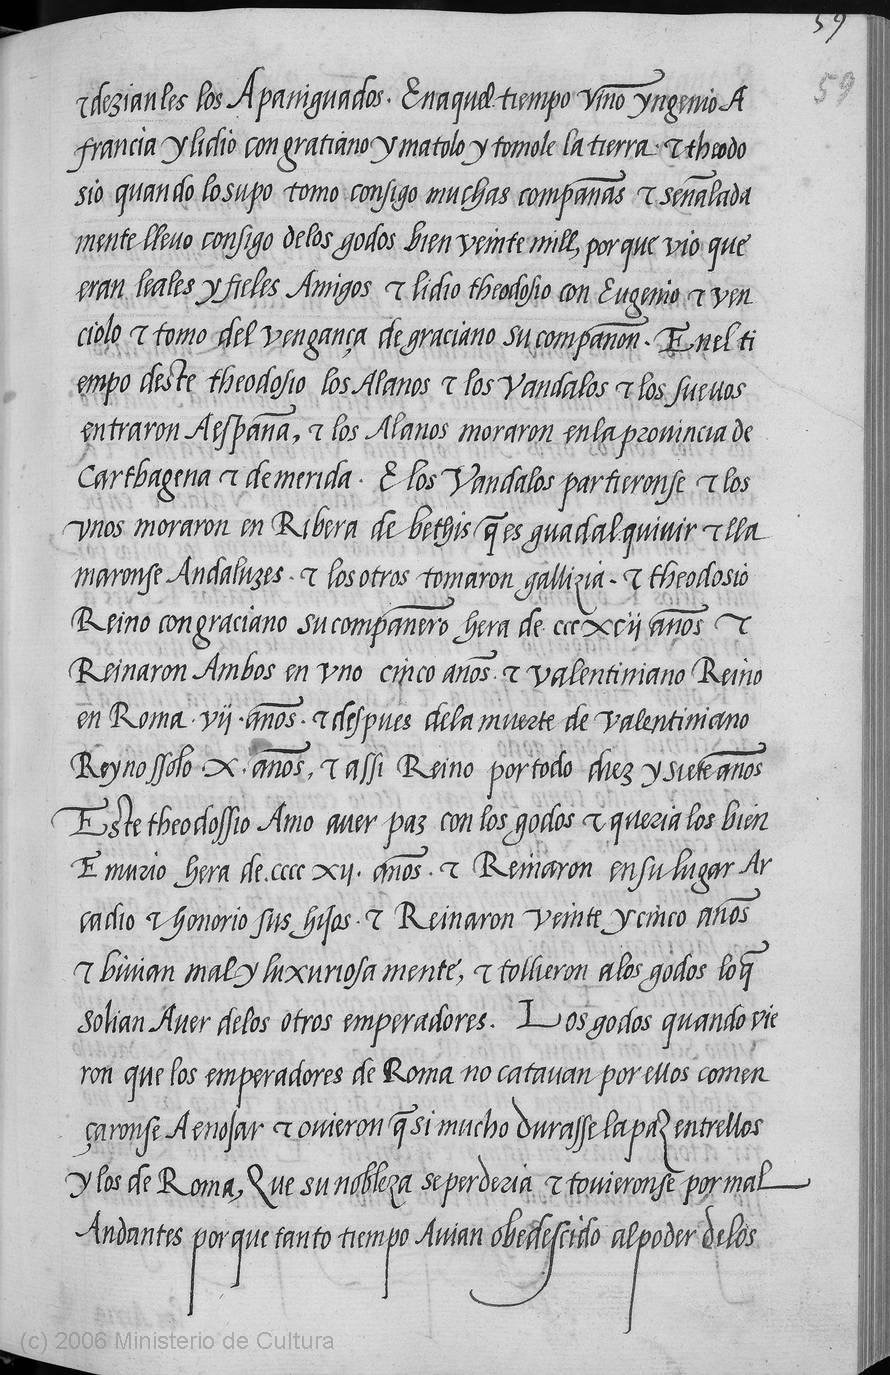 59
59
⁊ dezianles los Apaniguados. Enaquel tiempo vino yngenio A
francia y lidio con gratiano y matolo y tomole la tierra. ⁊ theodo
sio quando lo supo tomo consigo muchas compañas ⁊ señalada
mente llevo consigo delos godos bien veinte mill, porque vio que
eran leales y fieles Amigos ⁊ lidio theodosio con Eugenio ⁊ ven
ciolo ⁊ tomo del vengança de graciano su compañon. En el ti
empo deste theodosio los Alanos ⁊ los Vandalos ⁊ los suevos
entraron A españa, ⁊ los Alanos moraron en la provincia de
Carthagena ⁊ de merida. E los Vandalos partieronse ⁊ los
vnos moraron en Ribera de bethis q̃ es guadalquivir ⁊ lla
maronse Andaluzes. ⁊ los otros tomaron gallizia. ⁊ theodosio
Reino con graciano su compañero hera de. cccxcii años ⁊
Reinaron Ambos en vno cinco años. ⁊ valentiniano Reino
en Roma. vij. años. ⁊ despues dela muerte de valentiniano
Reyno ssolo. x. años, ⁊ assi Reino por todo diez y siete años
Este theodossio Amo aver paz con los godos ⁊ queria los bien
E murio hera de. cccc xij. años. ⁊ Reinaron en su lugar Ar
cadio ⁊ honorio sus hijos. ⁊ Reinaron veinte y cinco años
⁊ bivian mal y luxuriosa mente, ⁊ tollieron a los godos lo q̃
solian Aver delos otros emperadores. Los godos quando vie
ron que los emperadores de Roma no catavan por ellos comen
çaronse A enojar ⁊ ovieron q̃ si mucho durasse la paz entrellos
y los de Roma, Que su nobleza se perderia ⁊ tovieronse por mal
Andantes porque tanto tiempo Avian obedescido al poder delos
(c) 2006 Ministerio de Cultura